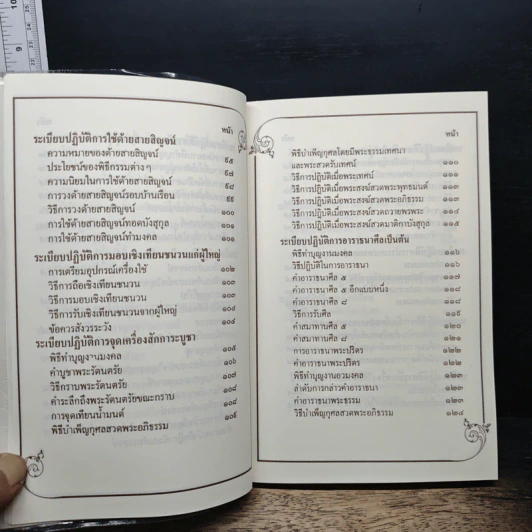 หน้า
ระเบียบปฏิบัติการใช้ด้ายสายสิญจน์
ความหมายของด้ายสายสิญจน์ ๙๕
ประโยชน์ของพิธีกรรมต่างๆ ๙๘
ความนิยมในการใช้ด้ายสายสิญจน์ ๙๘
การวงด้ายสายสิญจน์รอบบ้านเรือน ๙๙
วิธีการวงด้ายสายสิญจน์ ๑๐๐
การใช้ด้ายสายสิญจน์ทอดบังสุกุล ๑๐๑
การใช้ด้ายสายสิญจน์ทำมงคล ๑๐๑
ระเบียบปฏิบัติการมอบเชิงเทียนชนวนแก่ผู้ใหญ่
การเตรียมอุปกรณ์เครื่องใช้ ๑๐๒
วิธีการถือเชิงเทียนชนวน ๑๐๓
วิธีการมอบเชิงเทียนชนวน ๑๐๓
วิธีการรับเชิงเทียนชนวนจากผู้ใหญ่ ๑๐๔
ข้อควรสังวรระวัง ๑๐๔
ระเบียบปฏิบัติการจุดเครื่องสักการะบูชา
พิธีทำบุญงานมงคล ๑๐๕
คำบูชาพระรัตนตรัย ๑๐๖
วิธีกราบพระรัตนตรัย ๑๐๗
คำระลึกถึงพระรัตนตรัยขณะกราบ ๑๐๘
การจุดเทียนน้ำมนต์ ๑๐๘
พิธีบำเพ็ญกุศลสวดพระอภิธรรม ๑๐๙
หน้า
พิธีบำเพ็ญกุศลโดยมีพระธรรมเทศนา
และพระสวดรับเทศน์ ๑๑๑
วิธีการปฏิบัติเมื่อพระเทศน์ ๑๑๑
วิธีการปฏิบัติเมื่อพระสงฆ์สวดพระพุทธมนต์ ๑๑๓
วิธีการปฏิบัติเมื่อพระสงฆ์สวดพระอภิธรรม ๑๑๓
วิธีการปฏิบัติเมื่อพระสงฆ์สวดถวายพรพระ ๑๑๔
วิธีการปฏิบัติเมื่อพระสงฆ์สวดมาติกาบังสุกุล ๑๑๕
ระเบียบปฏิบัติการอาราธนาศีลเป็นต้น
พิธีทำบุญงานมงคล ๑๑๖
วิธีปฏิบัติในการอาราธนา ๑๑๖
คำอาราธนาศีล ๕ ๑๑๗
คำอาราธนาศีล ๕ อีกแบบหนึ่ง ๑๑๘
คำอาราธนาศีล ๘ ๑๑๘
วิธีการรับศีล ๑๑๙
คำสมาทานศีล ๕ ๑๒๐
คำสมาทานศีล ๘ ๑๒๑
การอาราธนาพระปริตร ๑๒๒
คำอาราธนาพระปริตร ๑๒๒
พิธีทำบุญงานอวมงคล ๑๒๒
ลำดับการกล่าวคำอาราธนา ๑๒๓
คำอาราธนาพระธรรม ๑๒๓
พิธีบำเพ็ญกุศลสวดพระอภิธรรม ๑๒๔